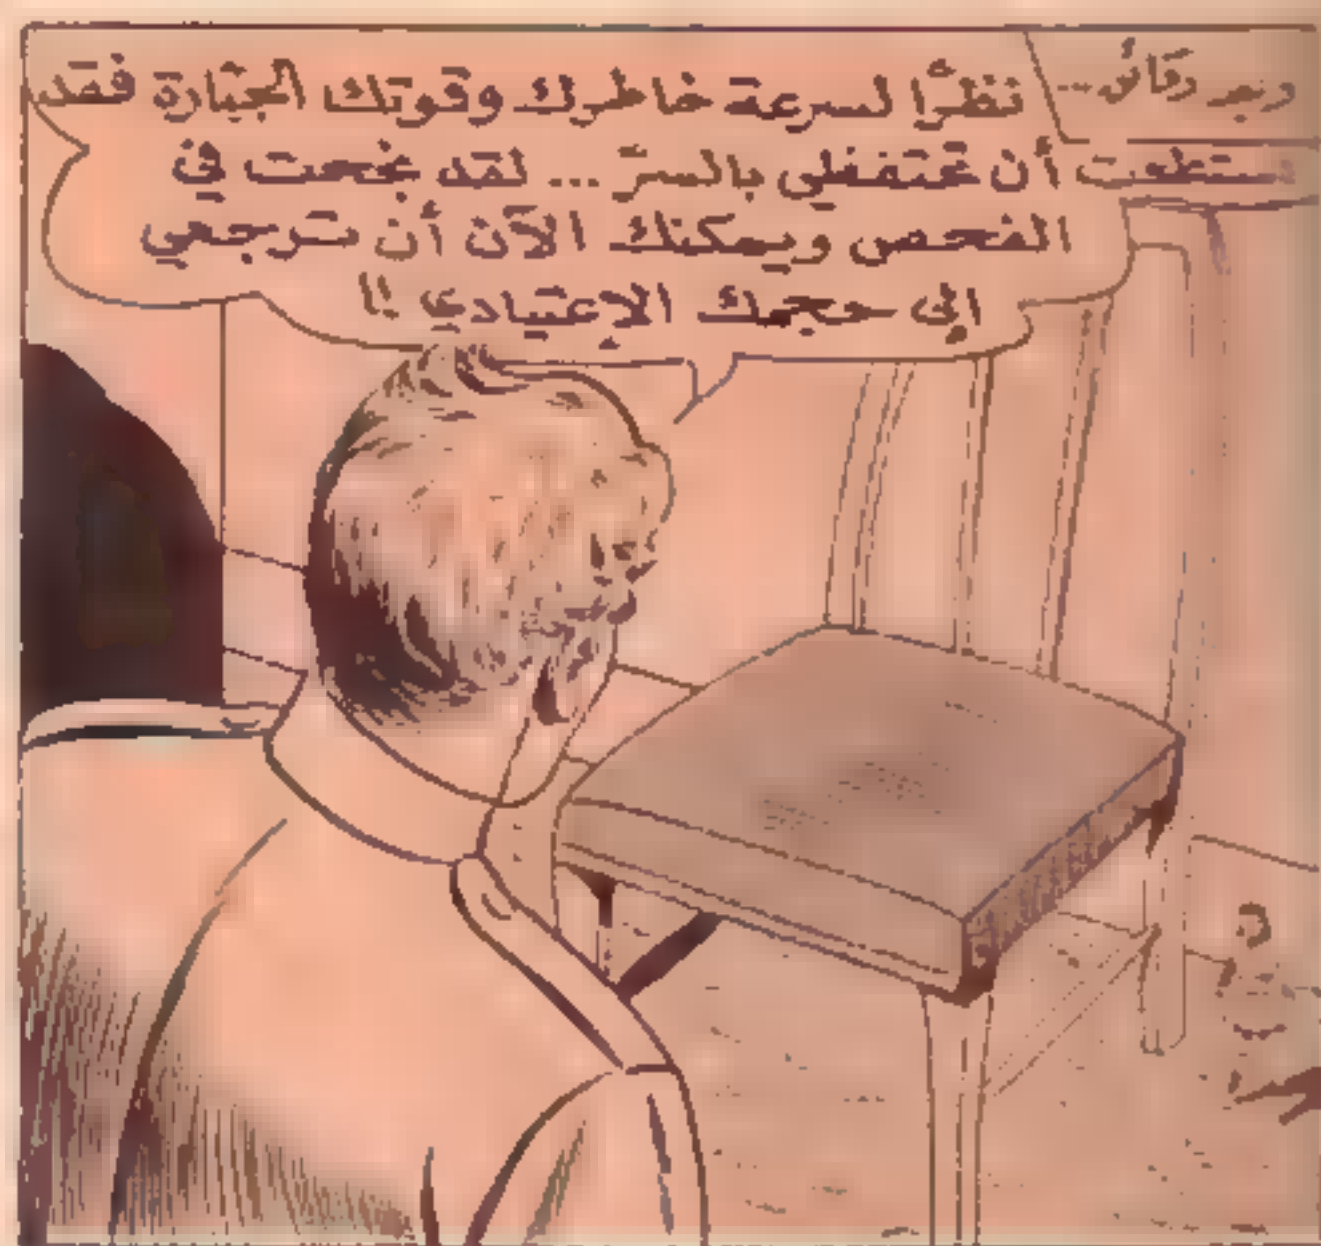 وبعد دقائق...
نظرًا لسرعة خاطرك وقوتك الجبّارة فقد
استطعت أن تحتفظي بالسرّ... لقد نجحت في
الفحص ويمكنك الآن أن ترجعي
إلى حجمك الاعتيادي !!